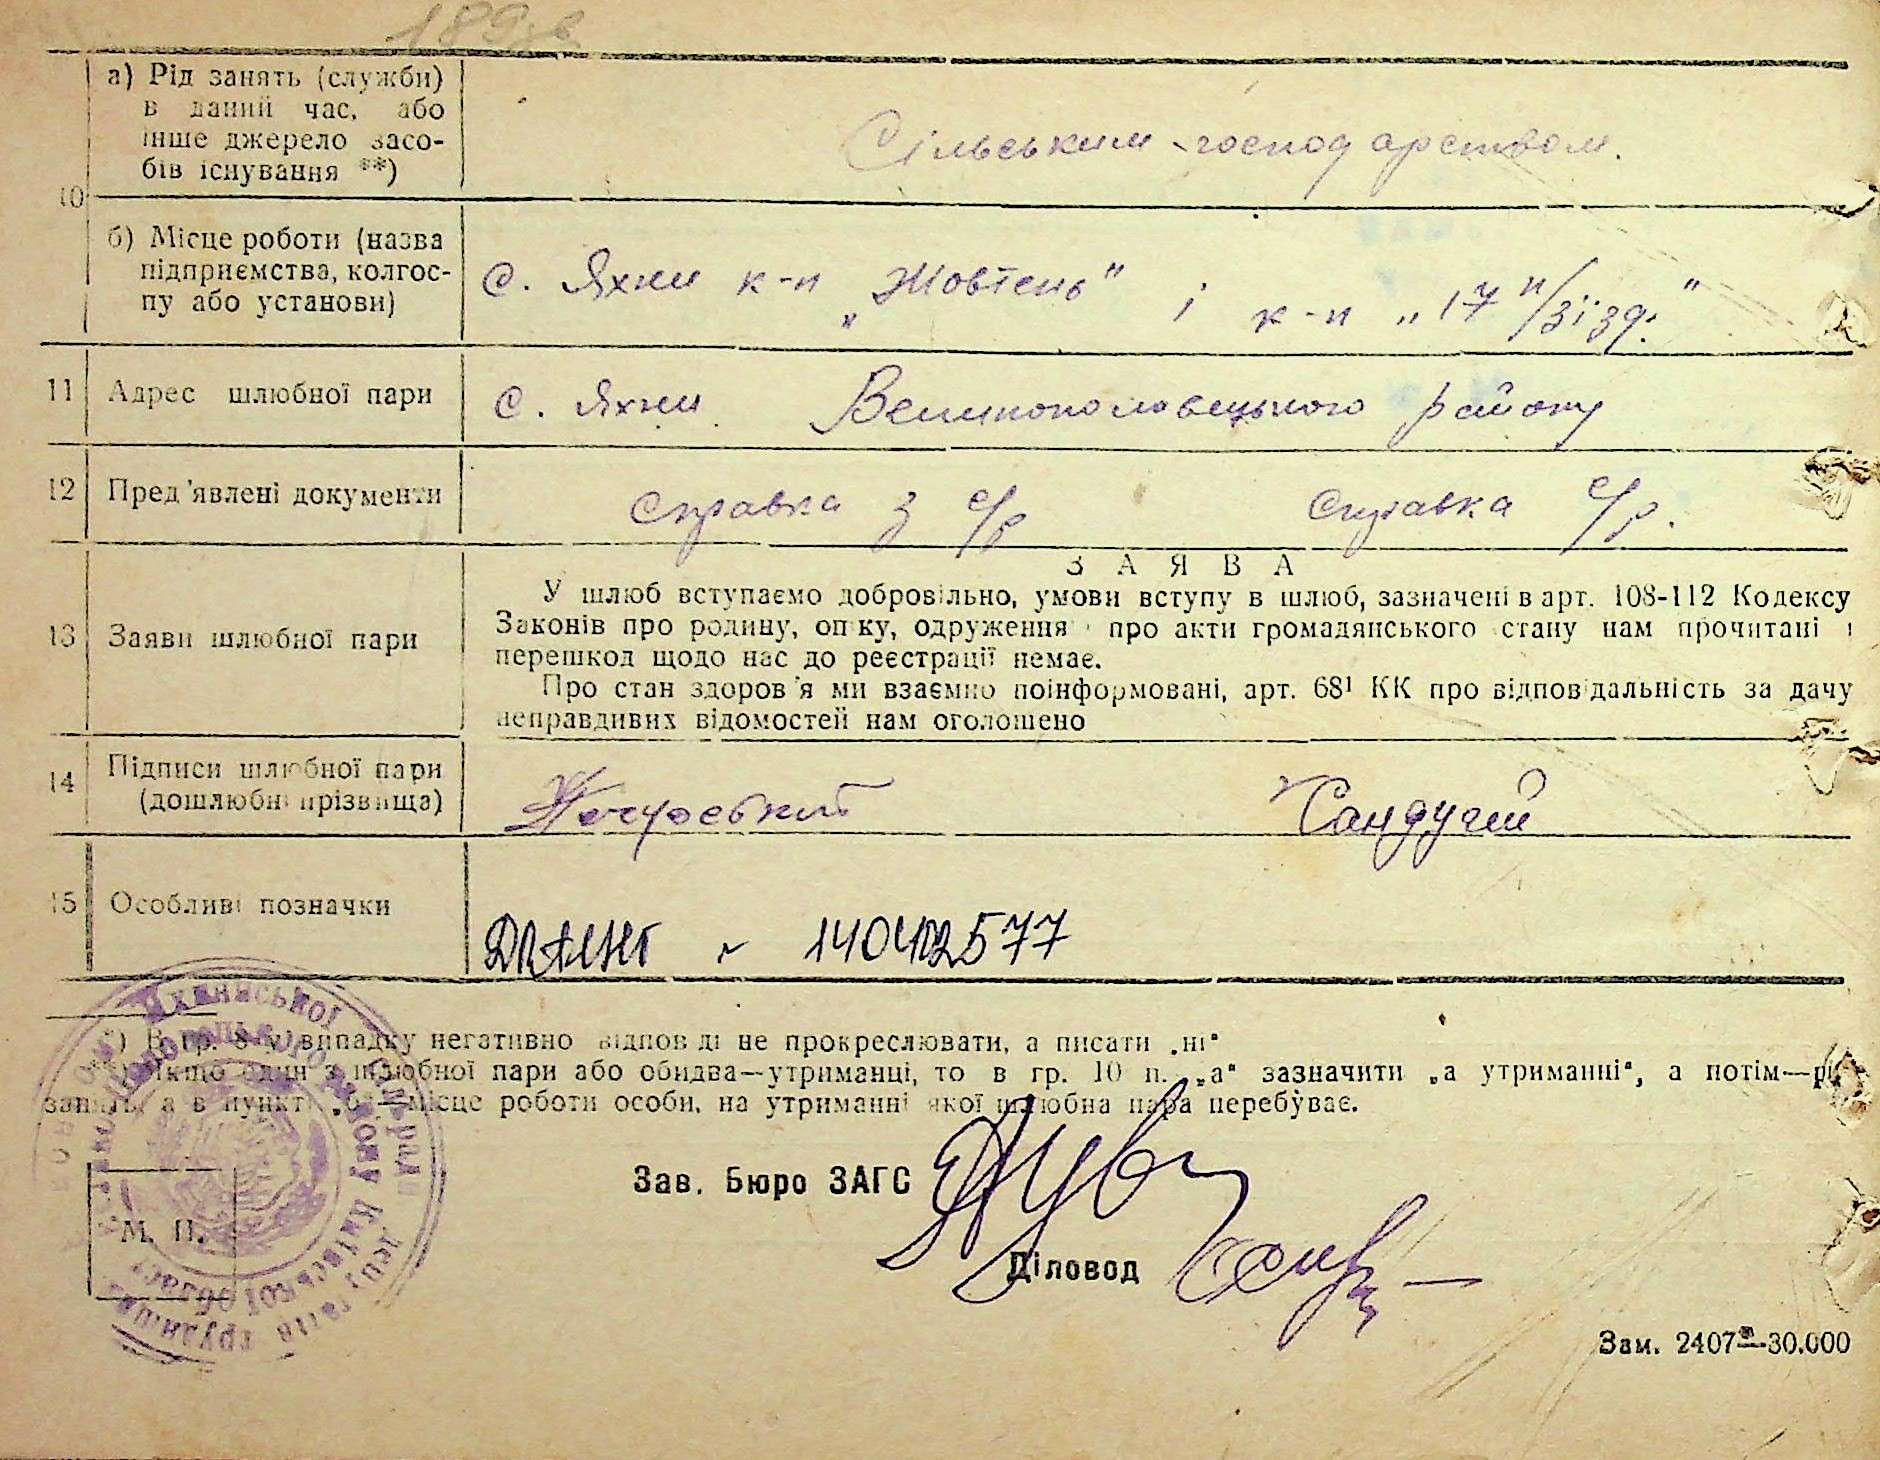 189зв
10
а) Рід занять (служби)
в даний час, або
інше джерело засо-
бів існування **)
Сільським господарством.
б) Місце роботи (назва
підприємства, колгос-
пу або установи)
с. Яхни к-п „Жовтень" і к-п „17 п/зїзд."
11 Адрес шлюбної пари
с. Яхни Великополовецького району
12 Пред'явлені документи
Справка з с/р Справка с/р.
13 Заяви шлюбної пари
ЗАЯВА
У шлюб вступаємо добровільно, умови вступу в шлюб, зазначені в арт. 108-112 Кодексу
Законів про родину, опіку, одруження і про акти громадянського стану нам прочитані і
перешкод щодо нас до реєстрації немає.
Про стан здоров'я ми взаємно поінформовані, арт. 68¹ КК про відповідальність за дачу
неправдивих відомостей нам оголошено
14 Підписи шлюбної пари
(дошлюбні прізвища)
Сандугей
15 Особливі позначки
14042577
*) В гр. 8 у випадку негативно відповіді не прокреслювати, а писати „ні"
**) Якщо один з шлюбної пари або обидва—утриманці, то в гр. 10 п. „а" зазначити „а утриманні", а потім—рід
занять, а в пункті „б"—місце роботи особи, на утриманні якої шлюбна пара перебуває.
Зав. Бюро ЗАГС
М. П.
Діловод
Яхнянської сільради депутатів трудящих
Великополовецького району Київської області
Зам. 2407—30.000